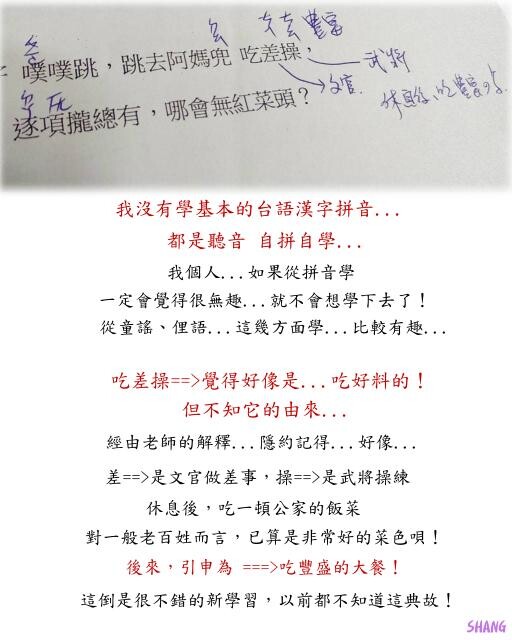 太去豐富
噗噗跳，跳去阿媽兜 吃差操，
武將
文官
逐項攏總有，哪會無紅菜頭？
休息後，吃豐富の
我沒有學基本的台語漢字拼音...
都是聽音 自拼自學...
我個人...如果從拼音學
一定會覺得很無趣...就不會想學下去了！
從童謠、俚語...這幾方面學...比較有趣...
吃差操==>覺得好像是...吃好料的！
但不知它的由來...
經由老師的解釋...隱約記得...好像...
差==>是文官做差事，操==>是武將操練
休息後，吃一頓公家的飯菜
對一般老百姓而言，已算是非常好的菜色唄！
後來，引申為 ===>吃豐盛的大餐！
這倒是很不錯的新學習，以前都不知道這典故！
SHANG